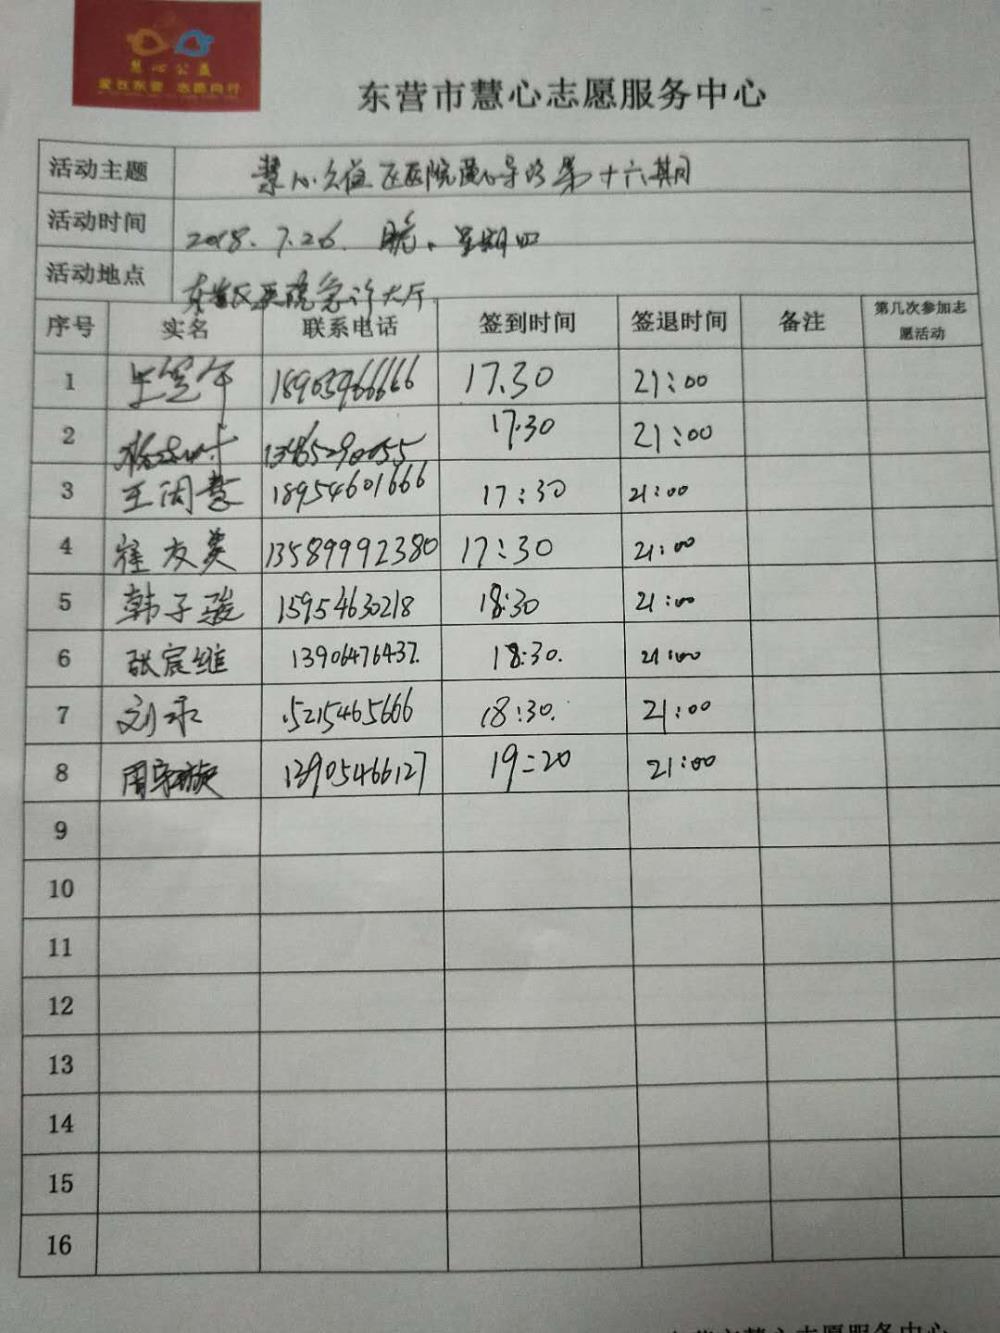 慧心公益
爱在东营 志愿同行
东营市慧心志愿服务中心
活动主题 慧心公益区医院 导诊第十六期
活动时间 2018.7.26. 晚. 星期四
活动地点 东营区医院急诊大厅.
序号 实名 联系电话 签到时间 签退时间 备注 第几次参加志愿活动
1 18903966666 17.30 21:00
2 17.30 21:00
3 王闰慧 18954601666 17:30 21:00
4 崔友英 13589992380 17:30 21:00
5 韩子骏 15954630218 18:30 21:00
6 张宸维 13906476437. 18:30. 21:00
7 刘 15215465666 18:30. 21:00
8 周 13905466127 19:20 21:00
9
10
11
12
13
14
15
16